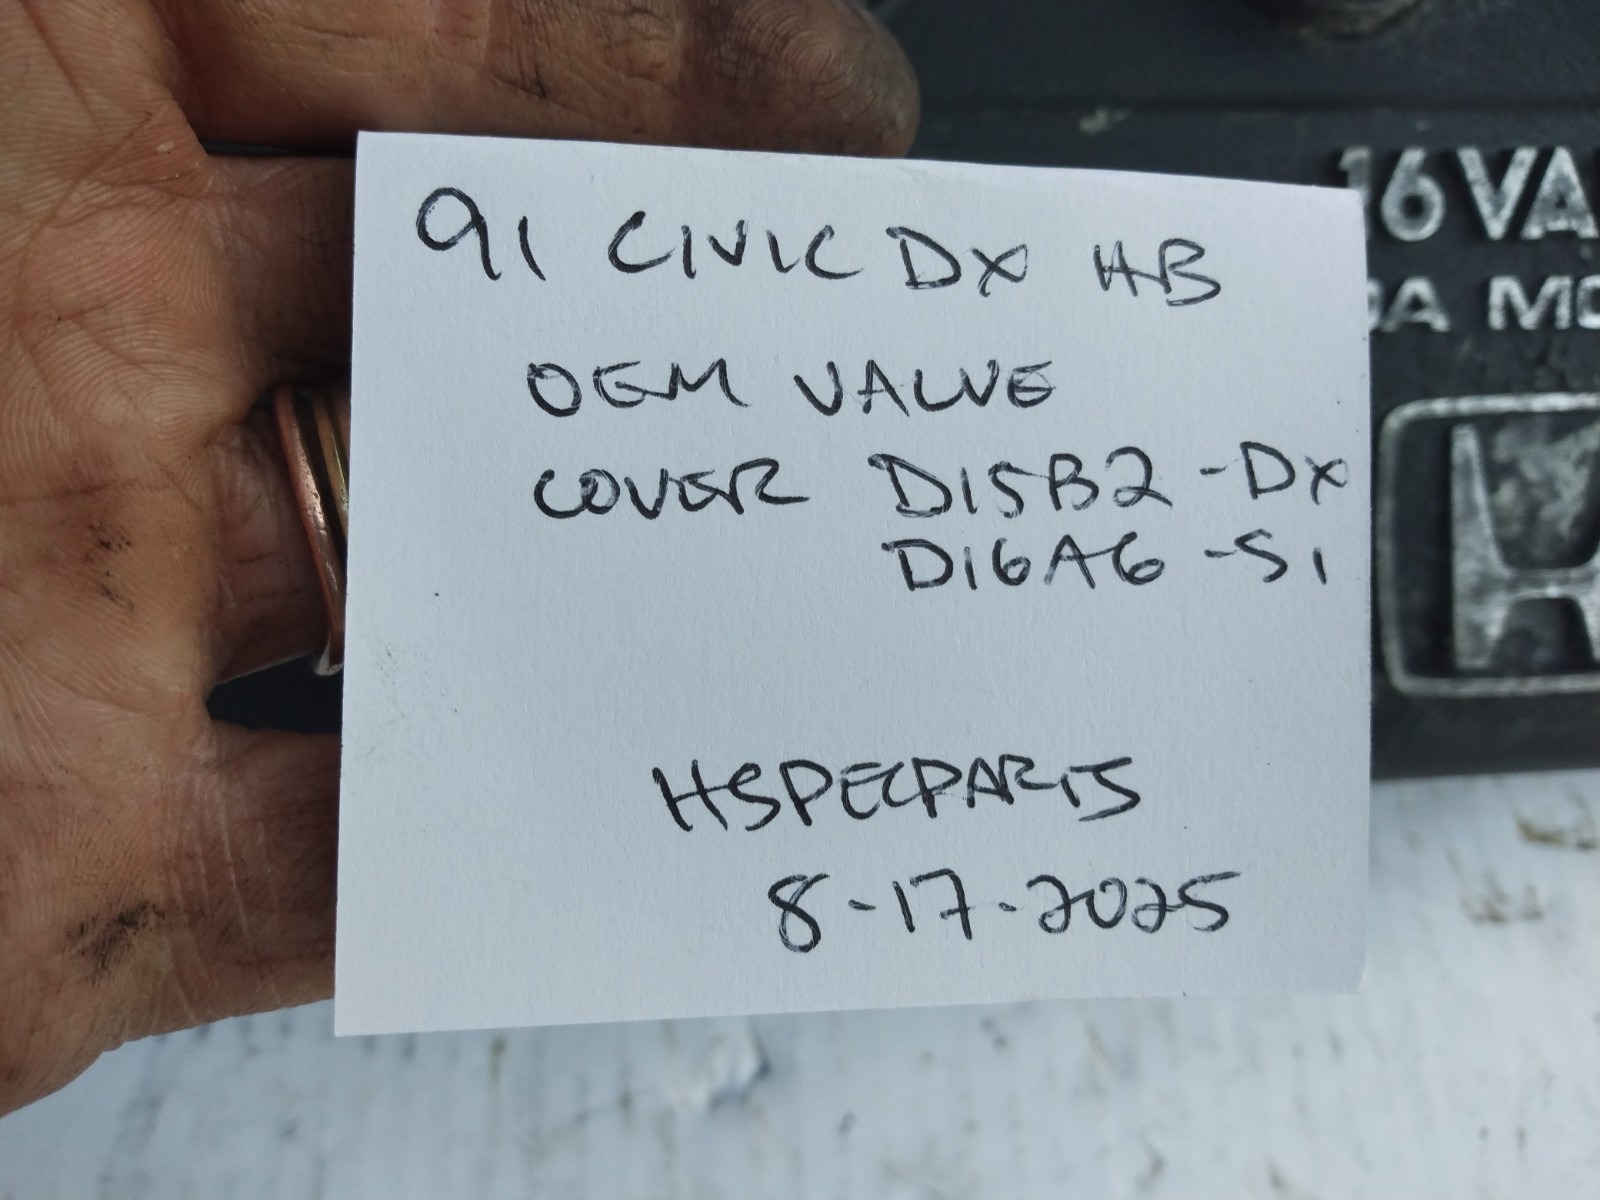 91 CIVIC DX HB
OEM VALVE
COVER D15B2 -DX
D16A6 -Si
HSPECPARTS
8-17-2025
16 VA
DA MO